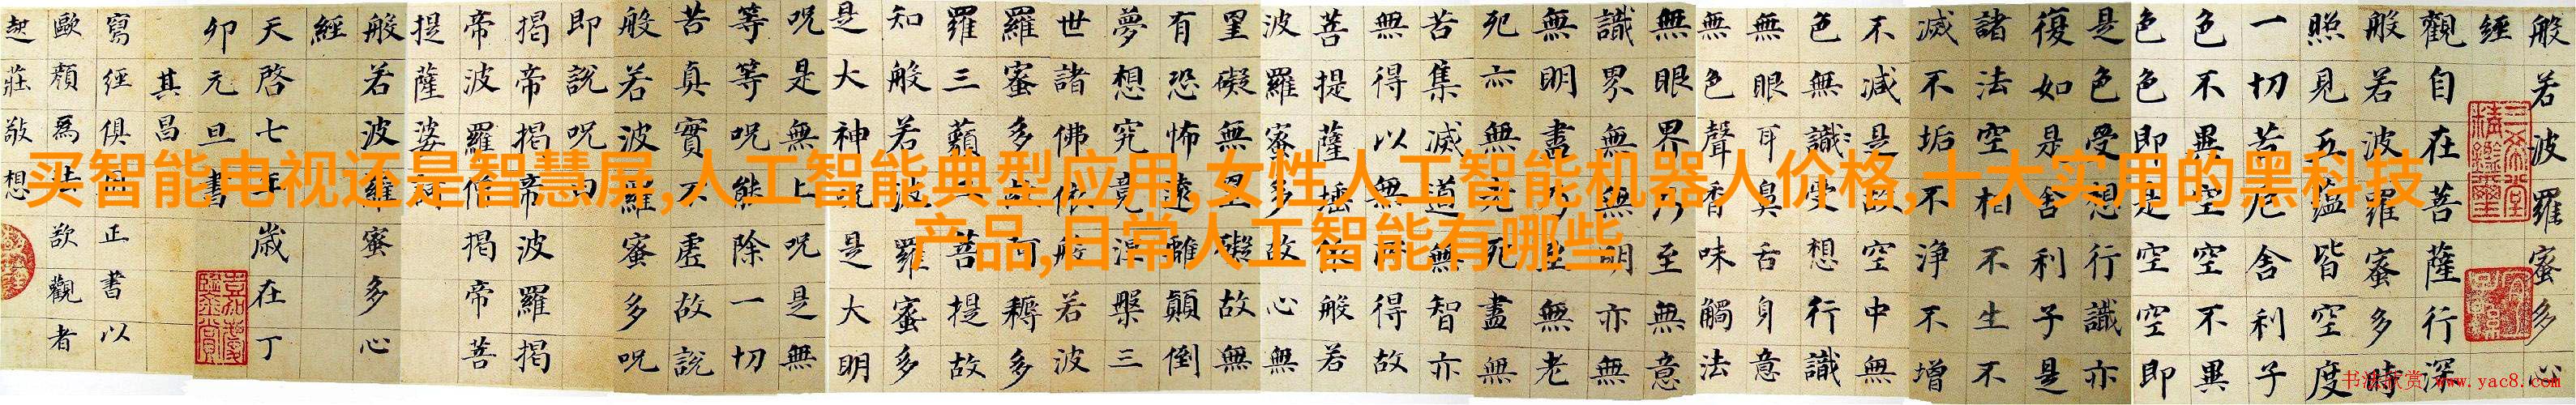 买智能电视还是智慧屏,人工智能典型应用,女性人工智能机器人价格,十大实用的黑科技
产品,日常人工智能有哪些
般若波羅蜜多心
經
觀自在菩薩行深
般若波羅蜜多時
照見五蘊皆空度
一切苦厄舍利子
色不異空空不異
色色即是空空即
是色受想行識亦
復如是舍利子是
諸法空相不生不
滅不垢不淨不增
不減是故空中無
色無識受想行識
無眼耳鼻舌身意
無色聲香味觸法
無眼界乃至無意
識界無無明亦無
無明盡乃至無老
死亦無老死盡無
苦集滅道無智亦
無得以無所得故
菩提薩埵依般若
波羅蜜多故心無
罣礙無罣礙故無
有恐怖遠離顛倒
夢想究竟涅槃三
世諸佛依般若波
羅蜜多故阿耨多
羅三藐三菩提故
知般若波羅蜜多
是大神呪是大明
呪是無上呪是無
等等呪能除一切
苦真實不虛故說
般若波羅蜜多呪
即說呪曰
揭帝揭帝波羅揭
帝波羅僧揭帝菩
提薩婆訶
般若波羅蜜多心
經
天啓七年歲在丁
卯元旦書
其昌
寫經俱用正書以
歐顏為法欲觀者
起莊敬想
书法欣赏 www.yac8.com